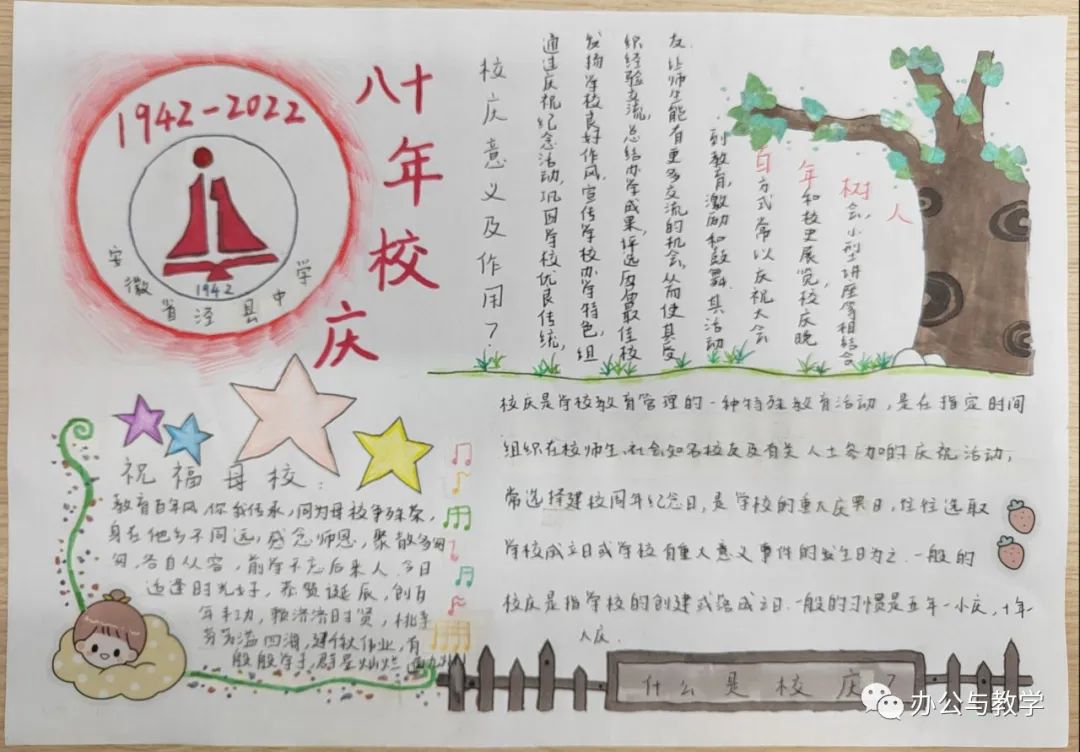 1942-2022
安徽省泾县中学
1942
八十年校庆
校庆意义及作用？
通过庆祝纪念活动，巩固学校优良传统，
发扬学校良好作风，宣传学校办学特色，组
织经验交流，总结办学成果，评选历届最佳校
友，让师生能有更多交流的机会，从而使其受
到教育，激励和鼓舞，其活动
方式常以庆祝大会
和校史展览，校庆晚
会，小型讲座等相结合
百年树人
祝福母校：
教育百年风，你我传承，同为母校争殊荣，
身在他乡不同远，感念师恩，聚散多匆
匆，各自从容，前学不忘后来人，今日
适逢时光好，恭贺诞辰，创百
年丰功，赖济济时贤，桃李
芬芳溢四海，建千秋伟业，有
殷殷学子，群星灿烂
校庆是学校教育管理的一种特殊教育活动，是在指定时间
组织在校师生、社会知名校友及有关人士参加的庆祝活动，
常选择建校周年纪念日，是学校的重大庆典日，往往选取
学校成立日或学校有重大意义事件的发生日为之．一般的
校庆是指学校的创建或落成之日．一般的习惯是五年一小庆，十年一
大庆．
什么是校庆？
办公与教学